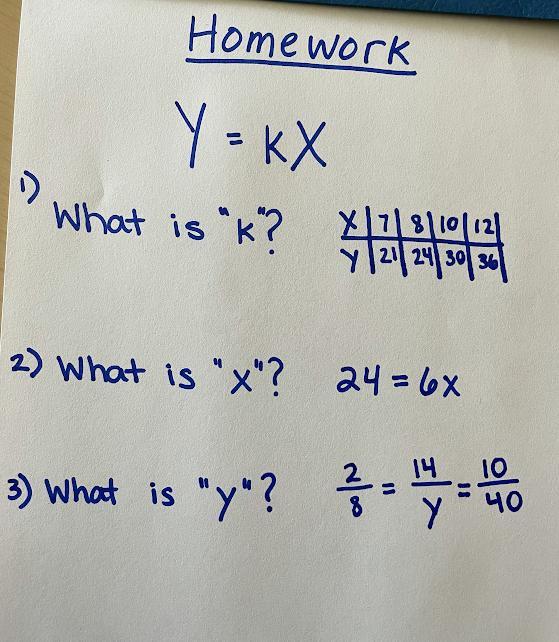 Homework
Y = kX
1) What is "k"?
X | 7 | 8 | 10 | 12 |
Y | 21 | 24 | 30 | 36 |
2) What is "x"? 24 = 6x
3) What is "y"? 2/8 = 14/y = 10/40